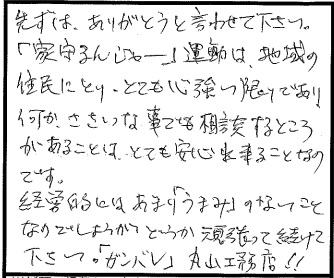 先ずは、ありがとうと言わせて下さい。
「家守るんじゃー」運動は、地域の
住民にとり、とても心強い限りであり
何か、ささいな事でも相談するところ
があることは、とても安心出来ることなの
です。
経営的にはあまり「うまみ」のないこと
なのでしょうが、どうか頑張って続けて
下さい。「ガンバレ」丸山工務店!!